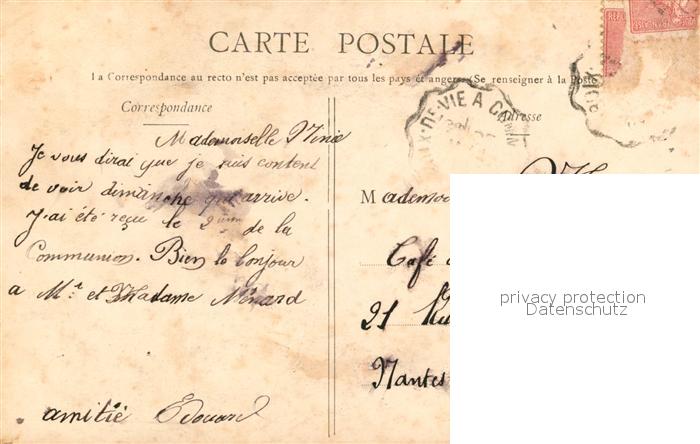 CARTE POSTALE
La Correspondance au recto n'est pas acceptée par tous les pays étrangers (Se renseigner à la Poste
Correspondance
Adresse
Mademoiselle Ninie
Je vous dirai que je suis content
de voir dimanche qui arrive.
J'ai été reçu le 2ième de la
Communion. Bien le bonjour
a Mr et Madame Ménard
amitié Edouard
DE-VIE A
Café
21
Nantes
privacy protection
Datenschutz